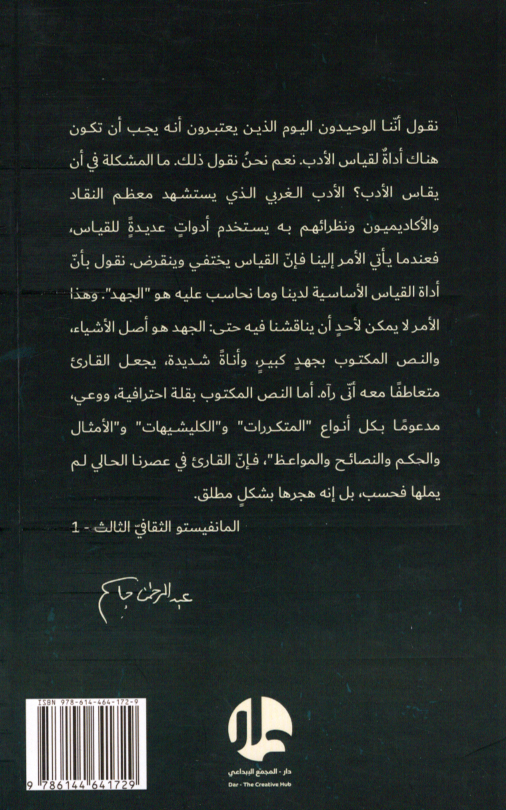 نقول أنّنا الوحيدون اليوم الذين يعتبرون أنه يجب أن تكون
هناك أداةٌ لقياس الأدب. نعم نحنُ نقول ذلك. ما المشكلة في أن
يقاس الأدب؟ الأدب الغربي الذي يستشهد معظم النقاد
والأكاديميون ونظرائهم به يستخدم أدواتٍ عديدةٍ للقياس،
فعندما يأتي الأمر إلينا فإنّ القياس يختفي وينقرض. نقول بأنّ
أداة القياس الأساسية لدينا وما نحاسب عليه هو "الجهد". وهذا
الأمر لا يمكن لأحدٍ أن يناقشنا فيه حتى: الجهد هو أصل الأشياء،
والنص المكتوب بجهدٍ كبيرٍ، وأناةً شديدة، يجعل القارئ
متعاطفًا معه أنّى رآه. أما النص المكتوب بقلة احترافية، ووعي،
مدعومًا بكل أنواع "المتكررات" و"الكليشيهات" و"الأمثال
والحكم والنصائح والمواعظ"، فإنّ القارئ في عصرنا الحالي لم
يملها فحسب، بل إنه هجرها بشكلٍ مطلق.
المانفيستو الثقافيّ الثالث - 1
عبدالرحمن جاسم
ISBN 978-614-464-172-9
9 786144 641729
دار - المجمّع الإبداعي
Dar - The Creative Hub